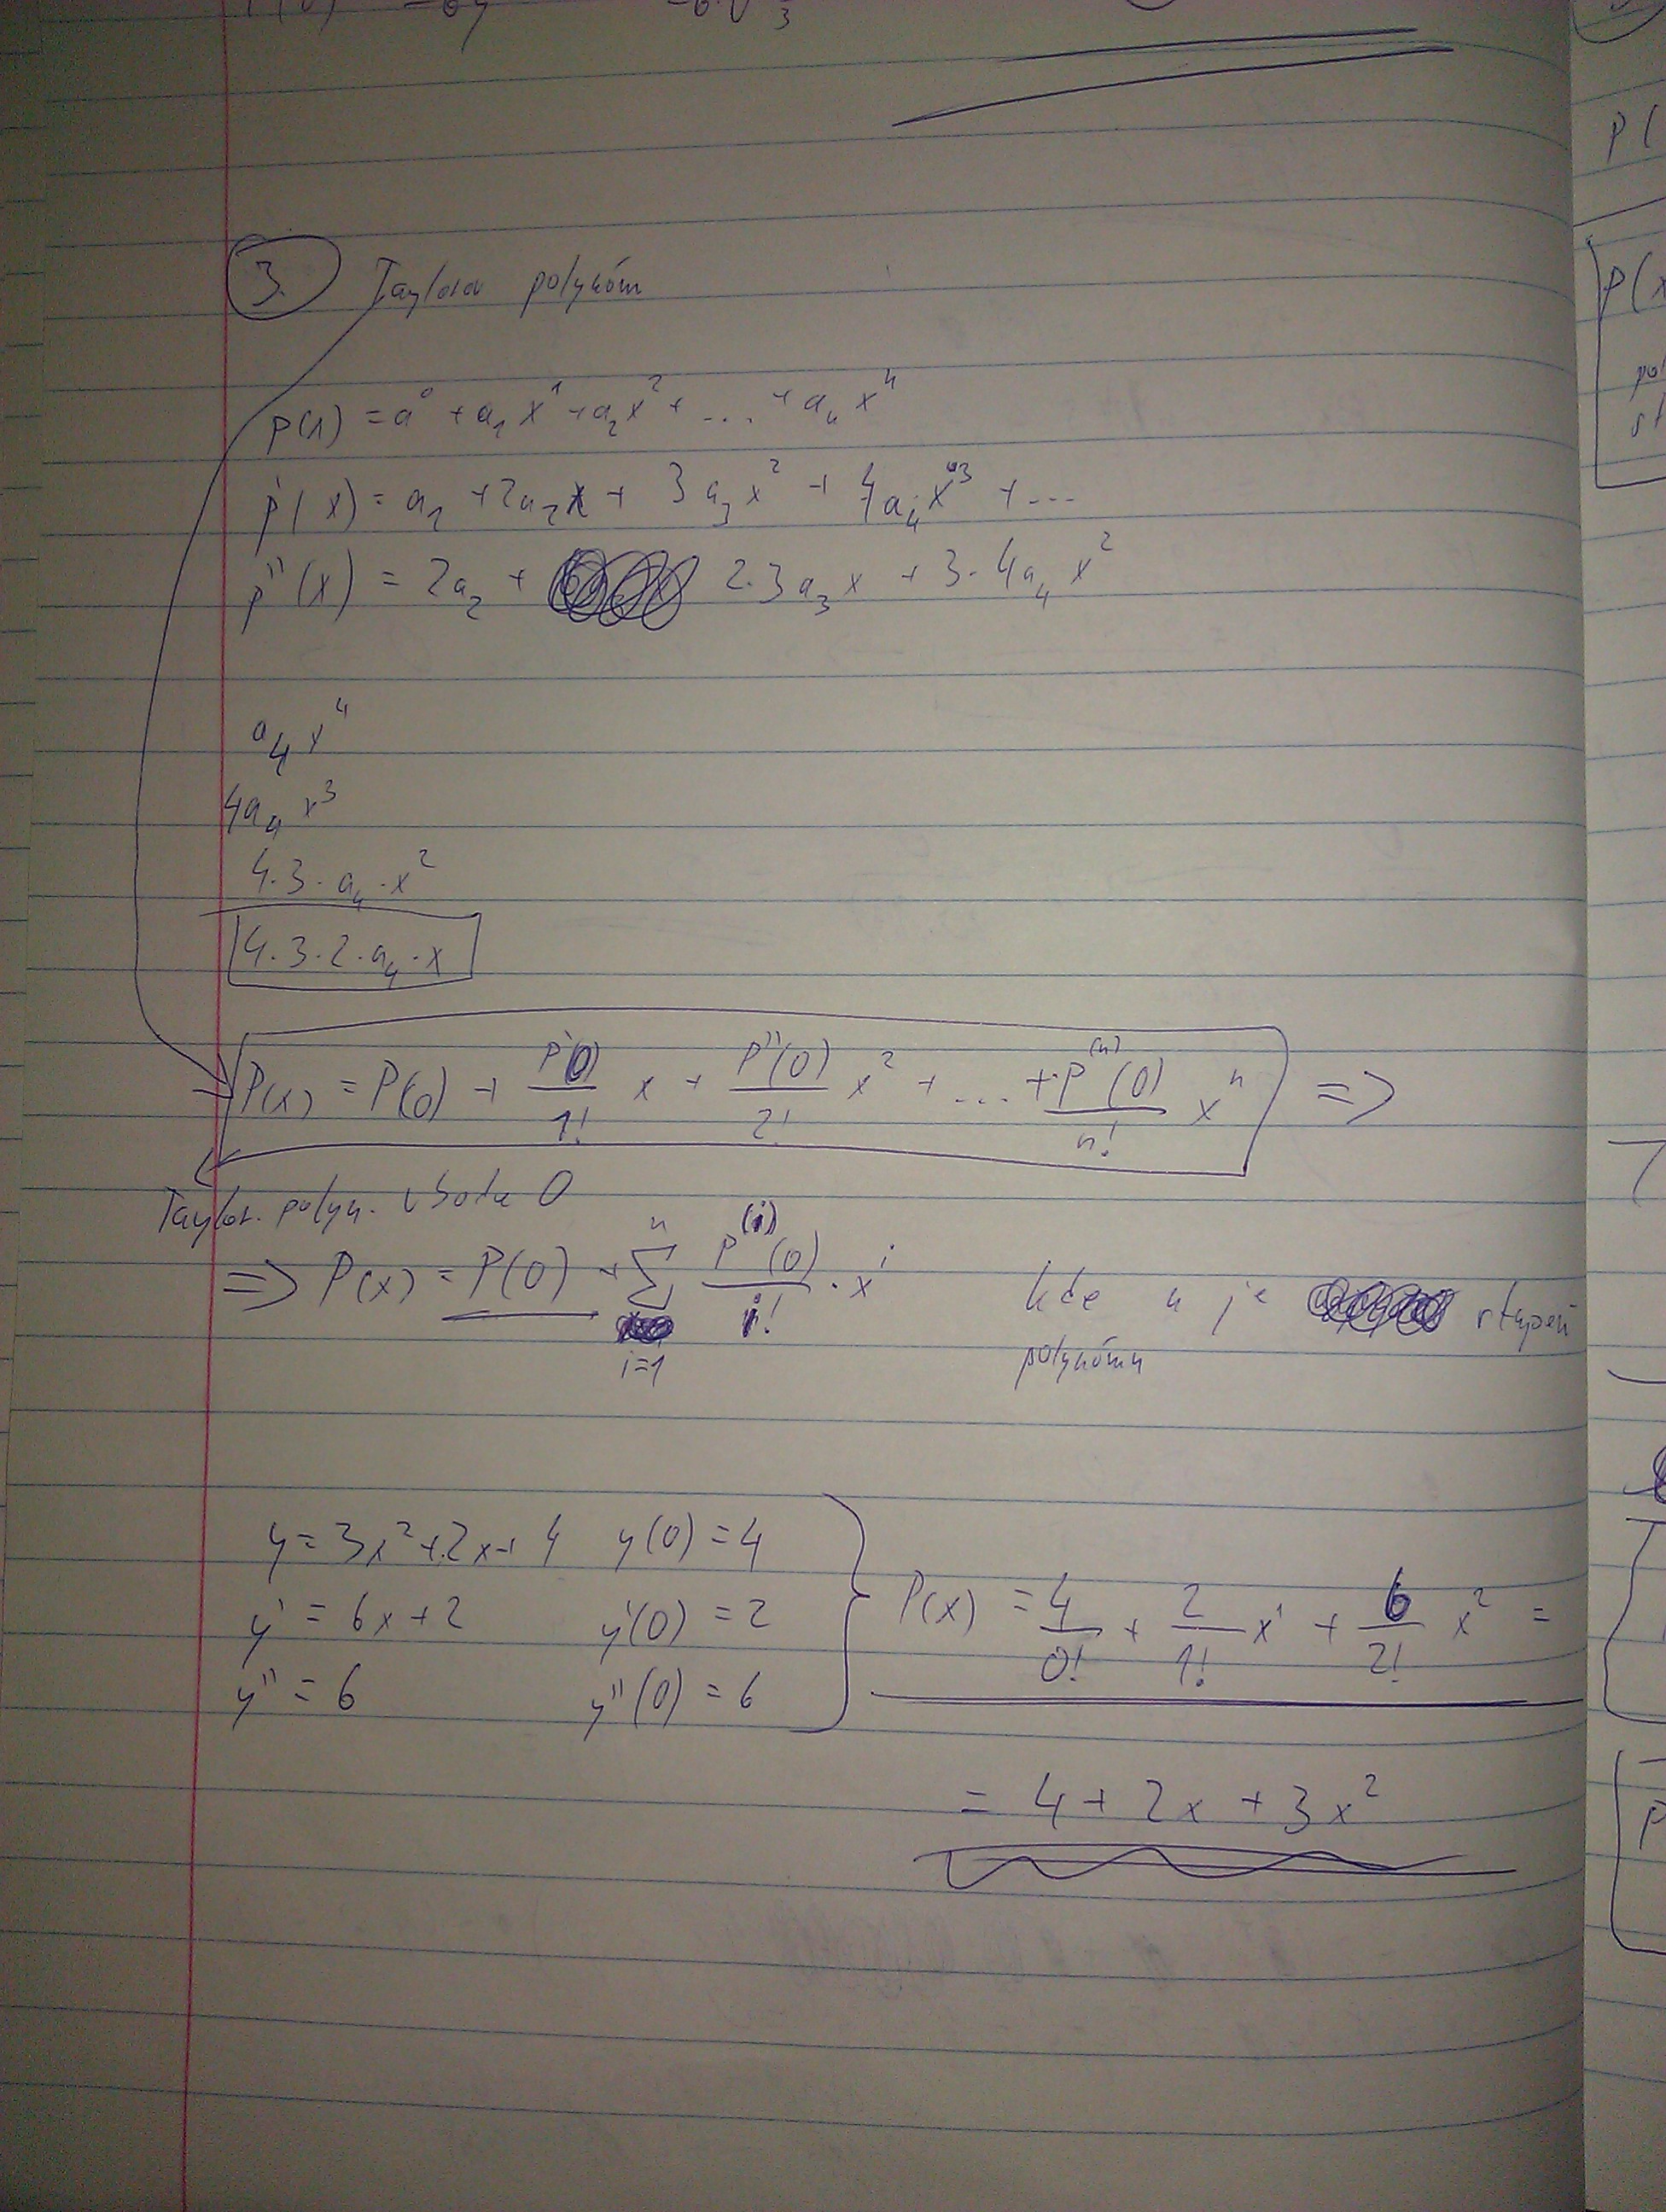 3. Taylorov polynóm
p(x) = a⁰ + a₁x¹ + a₂x² + ... + a₄x⁴
p'(x) = a₁ + 2a₂x + 3a₃x² + 4a₄x³ + ...
p''(x) = 2a₂ + 2.3a₃x + 3.4a₄x²
a₄x⁴
4a₄x³
4.3.a₄.x²
4.3.2.a₄.x
=> P(x) = P(0) + P'(0)/1! x + P''(0)/2! x² + ... + P⁽ⁿ⁾(0)/n! xⁿ =>
Taylor. polyn. v bode 0
=> P(x) = P(0) + Σ_{i=1}^{n} P⁽ⁱ⁾(0)/i! . xⁱ kde n je stupeň
polynómu
y = 3x² + 2x + 4 y(0) = 4
y' = 6x + 2 y'(0) = 2
y'' = 6 y''(0) = 6
P(x) = 4/0! + 2/1! x¹ + 6/2! x² =
= 4 + 2x + 3x²